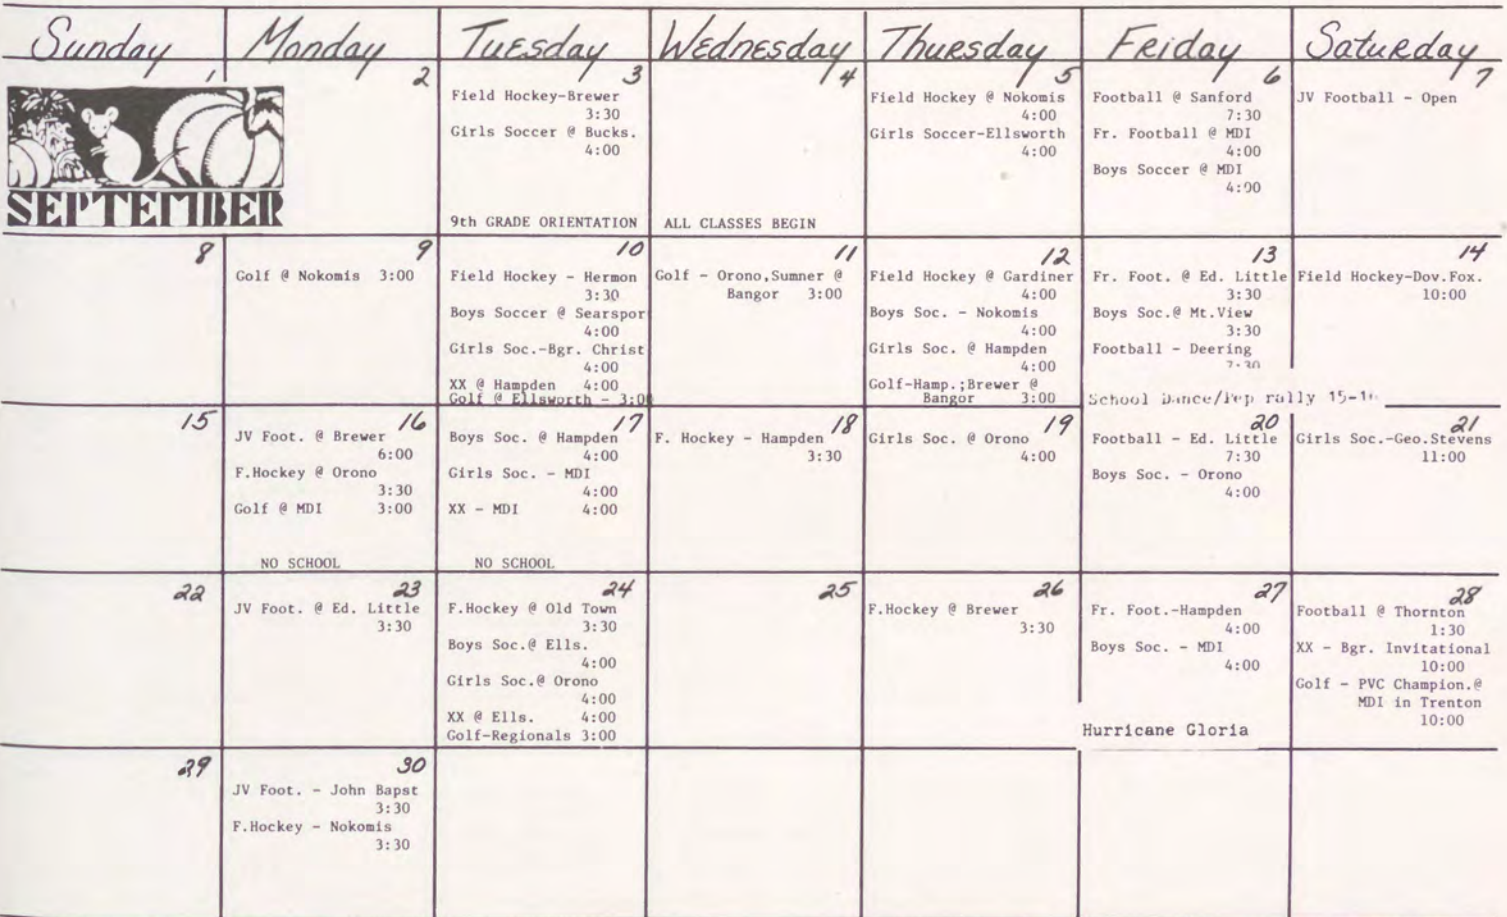 Sunday Monday Tuesday Wednesday Thursday Friday Saturday
1
SEPTEMBER
2
3
Field Hockey-Brewer
3:30
Girls Soccer @ Bucks.
4:00
9th GRADE ORIENTATION
4
ALL CLASSES BEGIN
5
Field Hockey @ Nokomis
4:00
Girls Soccer-Ellsworth
4:00
6
Football @ Sanford
7:30
Fr. Football @ MDI
4:00
Boys Soccer @ MDI
4:00
7
JV Football - Open
8
9
Golf @ Nokomis 3:00
10
Field Hockey - Hermon
3:30
Boys Soccer @ Searspor
4:00
Girls Soc.-Bgr. Christ
4:00
XX @ Hampden 4:00
Golf @ Ellsworth - 3:00
11
Golf - Orono,Sumner @
Bangor 3:00
12
Field Hockey @ Gardiner
4:00
Boys Soc. - Nokomis
4:00
Girls Soc. @ Hampden
4:00
Golf-Hamp.;Brewer @
Bangor 3:00
13
Fr. Foot. @ Ed. Little
3:30
Boys Soc.@ Mt.View
3:30
Football - Deering
7:30
School Dance/Pep rally
14
Field Hockey-Dov.Fox.
10:00
15
16
JV Foot. @ Brewer
6:00
F.Hockey @ Orono
3:30
Golf @ MDI 3:00
NO SCHOOL
17
Boys Soc. @ Hampden
4:00
Girls Soc. - MDI
4:00
XX - MDI 4:00
NO SCHOOL
18
F. Hockey - Hampden
3:30
19
Girls Soc. @ Orono
4:00
20
Football - Ed. Little
7:30
Boys Soc. - Orono
4:00
21
Girls Soc.-Geo.Stevens
11:00
22
23
JV Foot. @ Ed. Little
3:30
24
F.Hockey @ Old Town
3:30
Boys Soc.@ Ells.
4:00
Girls Soc.@ Orono
4:00
XX @ Ells. 4:00
Golf-Regionals 3:00
25
26
F.Hockey @ Brewer
3:30
27
Fr. Foot.-Hampden
4:00
Boys Soc. - MDI
4:00
Hurricane Gloria
28
Football @ Thornton
1:30
XX - Bgr. Invitational
10:00
Golf - PVC Champion.@
MDI in Trenton
10:00
29
30
JV Foot. - John Bapst
3:30
F.Hockey - Nokomis
3:30